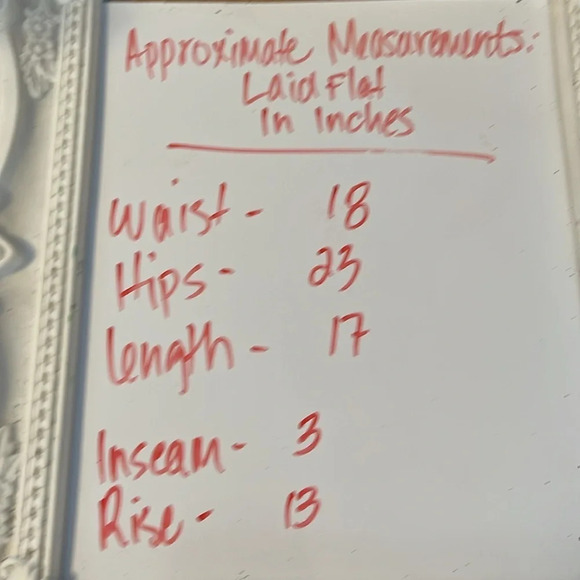 Approximate Measurements:
Laid Flat
In Inches
Waist - 18
Hips - 23
Length - 17
Inseam - 3
Rise - 13